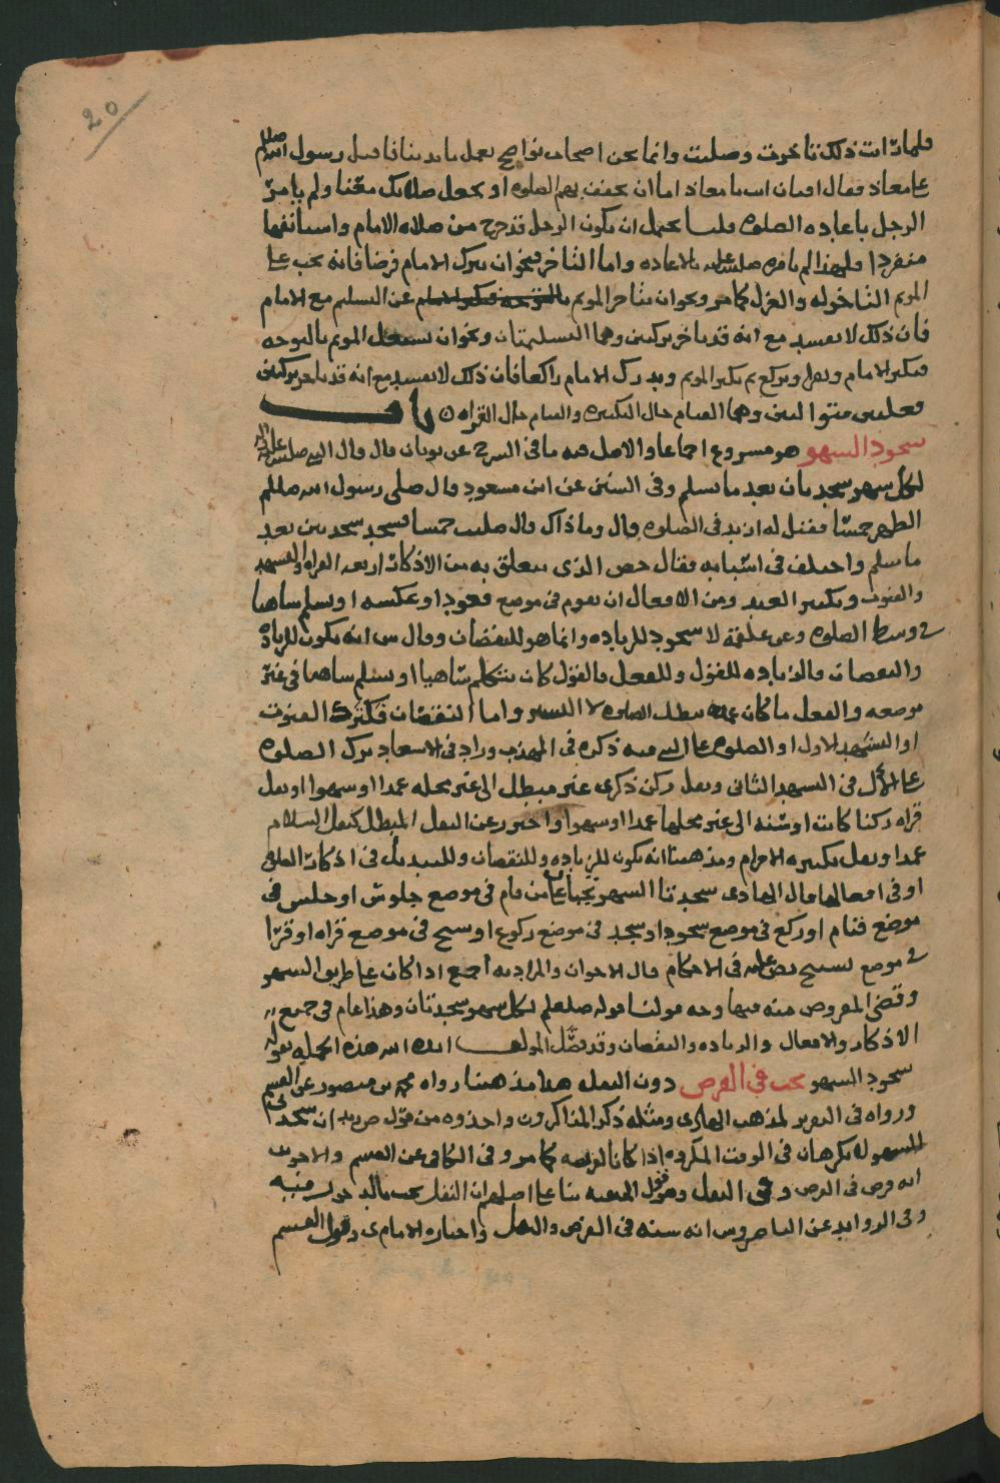 20
فلما رات ذلك تاخرت وصليت وانما نحن اصحاب نواضح نعمل بايدينا فاقبل رسول الله صللم
على معاذ فقال افتان انت يا معاذ اما ان تخفف بهم الصلوه او تجعل صلاتك معنا ولم يامر
الرجل باعاده الصلوه قلنا يحتمل ان يكون الرجل قد خرج من صلاه الامام واستانفها
منفردا ولهذا لم يامره صلى الله عليه بالاعاده واما التاخر فنحو ان يترك الامام فرضا فانه يجب على
الموتم التاخر له والعزل كما مر ونحو ان يتاخر الموتم عن التسليم مع الامام
فان ذلك لا يفسد مع انه قد تاخر بركنين وهما التسليمتان ونحو ان يشتغل الموتم بالتوجه
فيكبر الامام ويقرا ويركع ثم يكبر الموتم ويدرك الامام راكعا فان ذلك لا يفسد مع انه قد تاخر بركنين
فعليين متواليين وهما القيام حال التكبيره والقيام حال القراه ٥ باب
سجود السهو هو مشروع اجماعا والاصل فيه ما في الشرح عن ثوبان قال قال النبي صلى الله عليه واله
لكل سهو سجدتان بعد ما تسلم وفي السنن عن ابن مسعود قال صلى رسول الله صللم
الظهر خمسا فقيل له ازيد في الصلوه قال وما ذاك قال صليت خمسا فسجد سجدتين بعد
ما سلم واختلف في اسبابه فقال الذي يتعلق به من الاذكار اربعه القراه والتشهد
والقنوت وتكبير العيد ومن الافعال ان يقوم في موضع قعود او عكسه او سلم ساهيا
في وسط الصلوه وعن علقمة لا سجود للزياده وانما هو للنقصان وقال ش انه يكون للزياده
والنقصان فالزياده للقول وللفعل فالقول كان يتكلم ساهيا او يسلم ساهيا في غير
موضعه والفعل ما كان عمده يبطل الصلوه لا السهو واما النقصان فكترك القنوت
او التشهد الاول او الصلوه على النبي فيه ذكره في المهذب وزاد في الاسعاد ترك الصلوه
على الال في التشهد الثاني ونقل ركن ذكري غير مبطل الى غير محله عمدا او سهوا او نقل
قراه ركنا كانت او سنه الى غير محلها عمدا او سهوا واحترز عن النقل المبطل كنقل السلام
عمدا ونقل تكبيره الاحرام ومذهبنا انه يكون للزياده وللنقصان وللتبديل في اذكار الصلوه
او في افعالها قال الهادي سجدتا السهو تجبان على من قام في موضع جلوس او جلس في
موضع قيام او ركع في موضع سجود او سجد في موضع ركوع او سبح في موضع قراه او قرا
في موضع تسبيح نص عليه في الاحكام قال الاخوان والمراد به اجمع اذا كان على طريق السهو
وقضى المفروض منه فيها وجه قولنا قوله صلعلم لكل سهو سجدتان وهذا عام في جميع
الاذكار والافعال والزياده والنقصان وقد فصل المولف ايده الله هذه الجمله بقوله
سجود السهو يجب في الفرض دون النفل هذا مذهبنا رواه محمد بن منصور عن القسم
ورواه في التقرير لمذهب الهادي ومثله ذكر المذاكرون واخذوه من قول ان سجدتي
السهو لا تكرهان في الوقت المكروه اذا كانا لفريضه كما مر وفي الكافي عن القسم والاخوين
انه فرض في الفرض وفي النفل وهو قول الحنفيه بنا على اصلهم ان النفل يجب بالدخول فيه
وفي الزوايد عن الناصر وش انه سنه في الفرض والنفل واختاره الامام ي وقول القسم